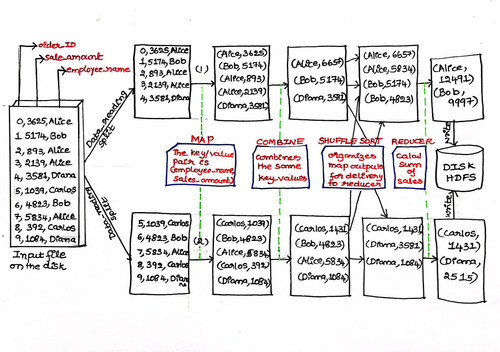 order_ID
sale_amount
employee_name
0, 3625, Alice
1, 5174, Bob
2, 893, Alice
3, 2139, Alice
4, 3581, Diana
5, 1039, Carlos
6, 4823, Bob
7, 5834, Alice
8, 392, Carlos
9, 1084, Diana
Input file
on the disk
Data reading
split
Data reading
split
0, 3625, Alice
1, 5174, Bob
2, 893, Alice
3, 2139, Alice
4, 3581, Diana
(1)
(Alice, 3625)
(Bob, 5174)
(Alice, 893)
(Alice, 2139)
(Diana, 3581)
(Alice, 6657)
(Bob, 5174)
(Diana, 3581)
(Alice, 6657)
(Alice, 5834)
(Bob, 5174)
(Bob, 4823)
(Alice,
12491)
(Bob,
9997)
MAP
The key/value
pair is
(employee_name,
sales_amount)
COMBINE
combines
the same
key_values
SHUFFLE SORT
organizes
map outputs
for delivery
to reducer
REDUCER
Calcul
Sum of
sales
write
DISK
HDFS
write
5, 1039, Carlos
6, 4823, Bob
7, 5834, Alice
8, 392, Carlos
9, 1084, Diana
(2)
(Carlos, 1039)
(Bob, 4823)
(Alice, 5834)
(Carlos, 392)
(Diana, 1084)
(Carlos, 1431)
(Bob, 4823)
(Alice, 5834)
(Diana, 1084)
(Carlos, 1431)
(Diana, 3581)
(Diana, 1084)
(Carlos,
1431)
(Diana,
2515)